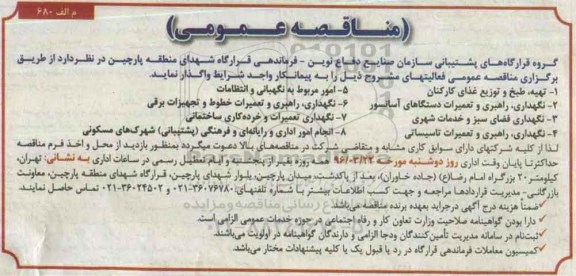 م الف ۶۸۰
(مناقصه عمومی)
گروه قرارگاه‌های پشتیبانی سازمان صنایع دفاع نوین - فرماندهی قرارگاه شهدای منطقه پارچین در نظردارد از طریق
برگزاری مناقصه عمومی فعالیتهای مشروح ذیل را به پیمانکار واجد شرایط واگذار نماید.
۱- تهیه، طبخ و توزیع غذای کارکنان
۵- امور مربوط به نگهبانی و انتظامات
۲- نگهداری، راهبری و تعمیرات دستگاهای آسانسور
۶- نگهداری، راهبری و تعمیرات خطوط و تجهیزات برقی
۳- نگهداری فضای سبز و خدمات شهری
۷- نگهداری تعمیرات و خرده‌کاری ساختمانی
۴- نگهداری، راهبری و تعمیرات تاسیساتی
۸- انجام امور اداری و رایانه‌ای و فرهنگی (پشتیبانی) شهرک‌های مسکونی
لذا از کلیه شرکتهای دارای سوابق کاری مشابه و متقاضی شرکت در مناقصه‌های بالا دعوت میگردد بمنظور بازدید از محل و اخذ فرم مناقصه
حداکثر تا پایان وقت اداری روز دوشنبه مورخ ۹۶/۰۳/۲۲ همه روزه بغیر از پنجشنبه و ایام تعطیل رسمی در ساعات اداری به نشانی: تهران،
کیلومتر ۲۰ بزرگراه امام رضا(ع) (جاده خاوران)، بعد از پاکدشت، میدان پارچین، بلوار شهدای پارچین، قرارگاه شهدای منطقه پارچین، معاونت
بازرگانی- مدیریت قراردادها مراجعه و جهت کسب اطلاعات بیشتر با شماره تلفنهای: ۳۶۰۷۶۷۸۰-۰۲۱ و ۳۶۰۲۴۵۰۲-۰۲۱ تماس حاصل نمایند.
ضمناً هزینه درج آگهی درجراید بعهده برنده مناقصه می‌باشد.
دارا بودن گواهینامه صلاحیت وزارت تعاون کار و رفاه اجتماعی در حوزه خدمات عمومی الزامی است.
ثبت‌نام در سامانه مدیریت تأمین‌کنندگان ودجا الزامی و دارندگان گواهینامه در اولویت می‌باشند.
کمیسیون معاملات فرماندهی قرارگاه در رد یا قبول یک یا کلیه پیشنهادات مختار می‌باشد.